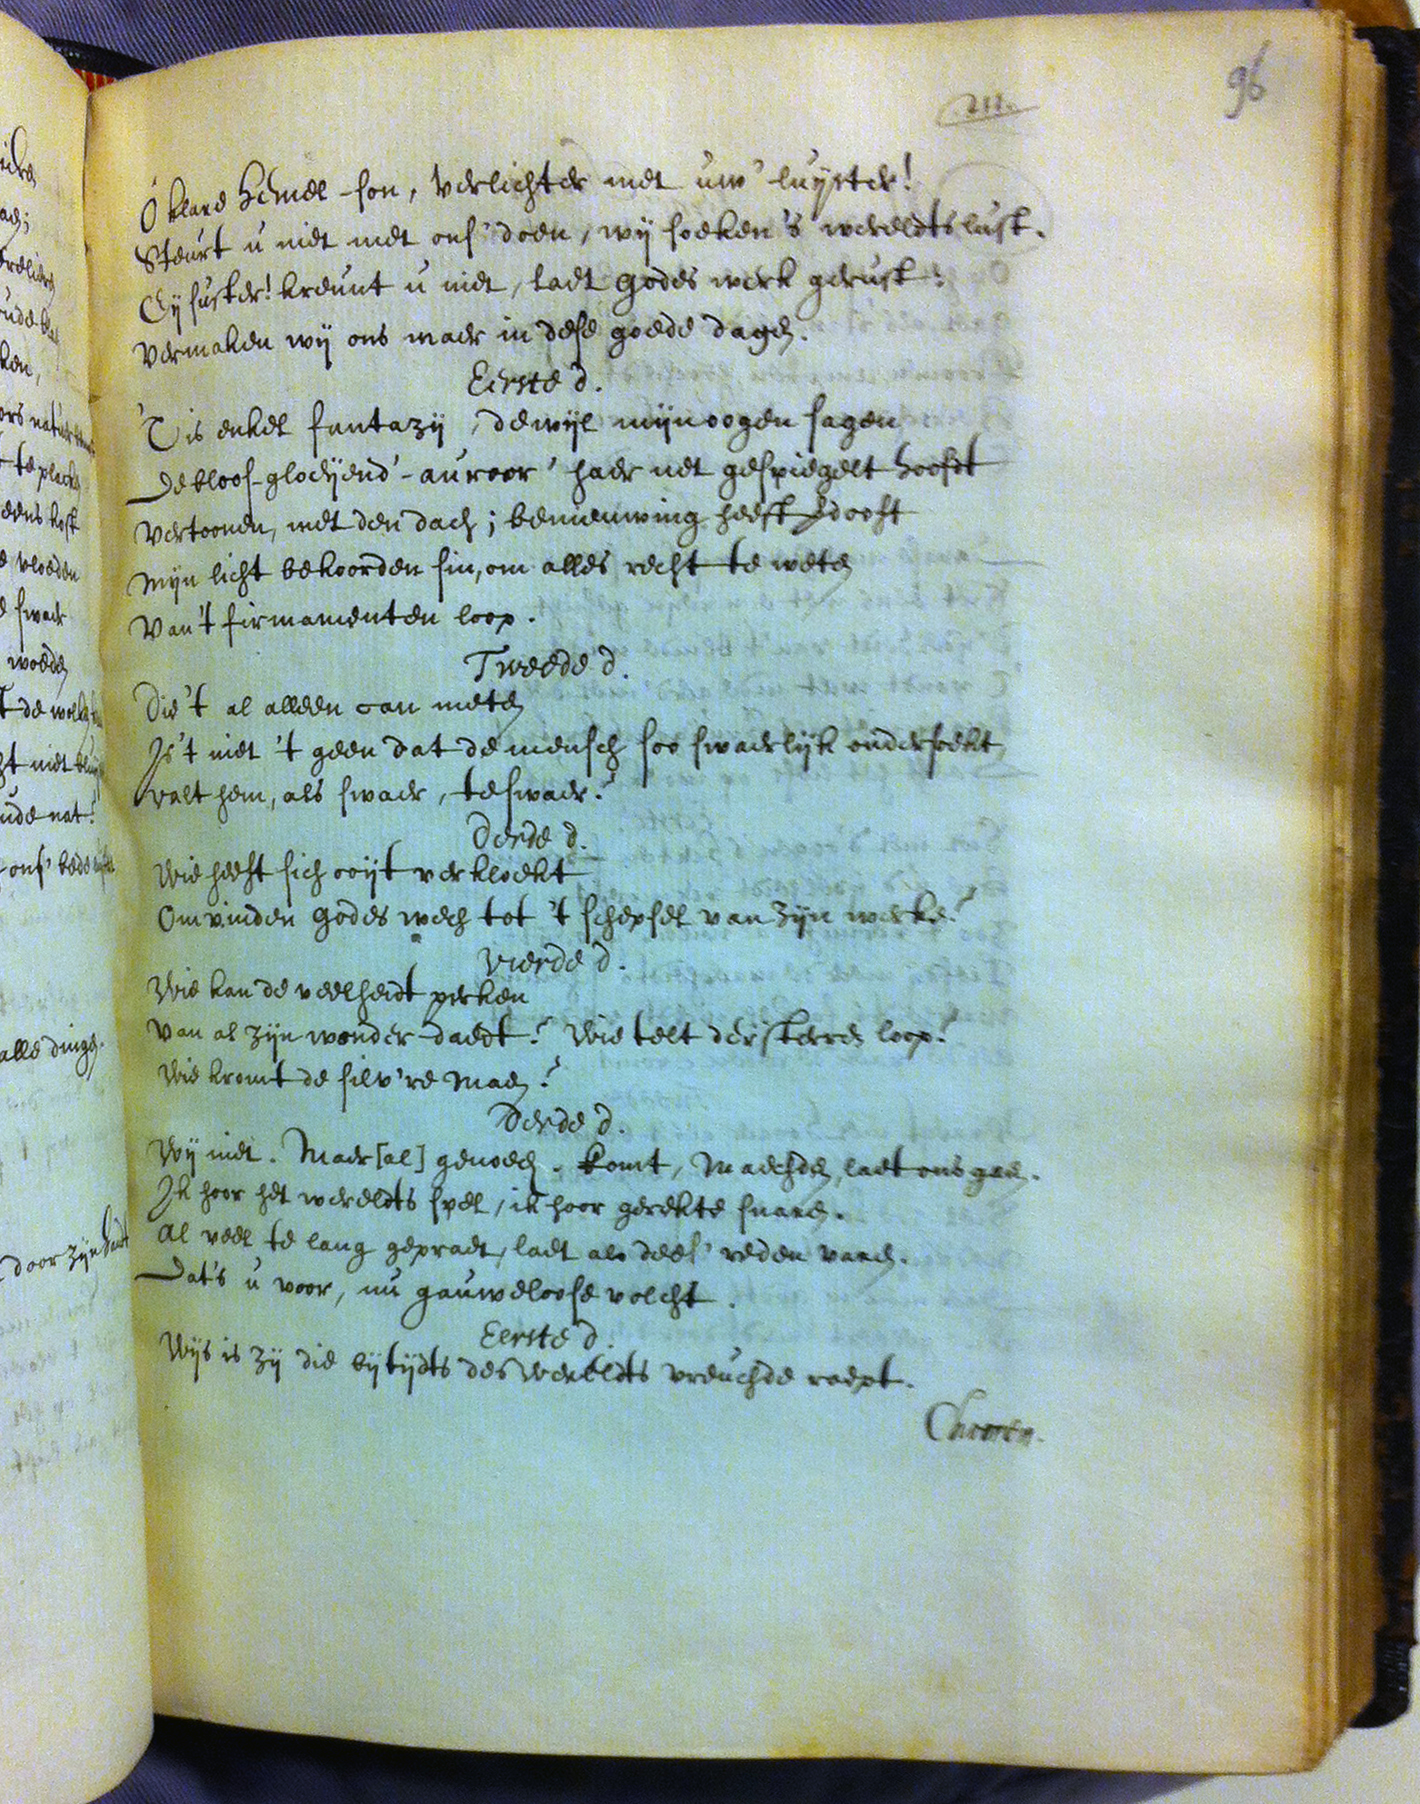 96
III.
O klare Hemel-son, verlichter met uw' luyster!
Steurt u niet met ons' doen, wij soeken 's werelts lust.
Eij suster! kreunt u niet, laet Godes werk gerust:
Vermaken wij ons maer in dese goede dagen.
Eerste d.
'T is enkel fantazij, dewijl mijn oogen sagen
De bloos-gloeijend'-auroor' haer net gespiegelt hooft
Vertoonen, met den dach; benieuwing heeft gedooft
Mijn licht bekoorden sin, om alles recht te weten
Van't firmamenten loop.
Tweede d.
Die't al alleen can meten
Is't niet 't geen dat de mensch soo swaerlijk ondersoekt
valt hem, als swaer, te swaer?
Derde d.
Wie heeft sich ooijt verkloekt
Om vinden Godes wech tot 't schepsel van zijn werke?
Vierde d.
Wie kan de veelheidt perken
Van al zijn wonder-daedt? Wie telt der sterren loop?
Wie kromt de silv're Maen?
Derde d.
Wij niet. Maer [al] genoech. komt, Maechden, laet ons gaen.
Ik hoor het werelts spel, ik hoor gerekte snaren.
Al veel te lang gepraet, laet als dees' reden varen.
Dat's u voor, nu gauweloose volcht.
Eerste d.
Wijs is zij die bijtijdts des Werelts vreuchde raept.